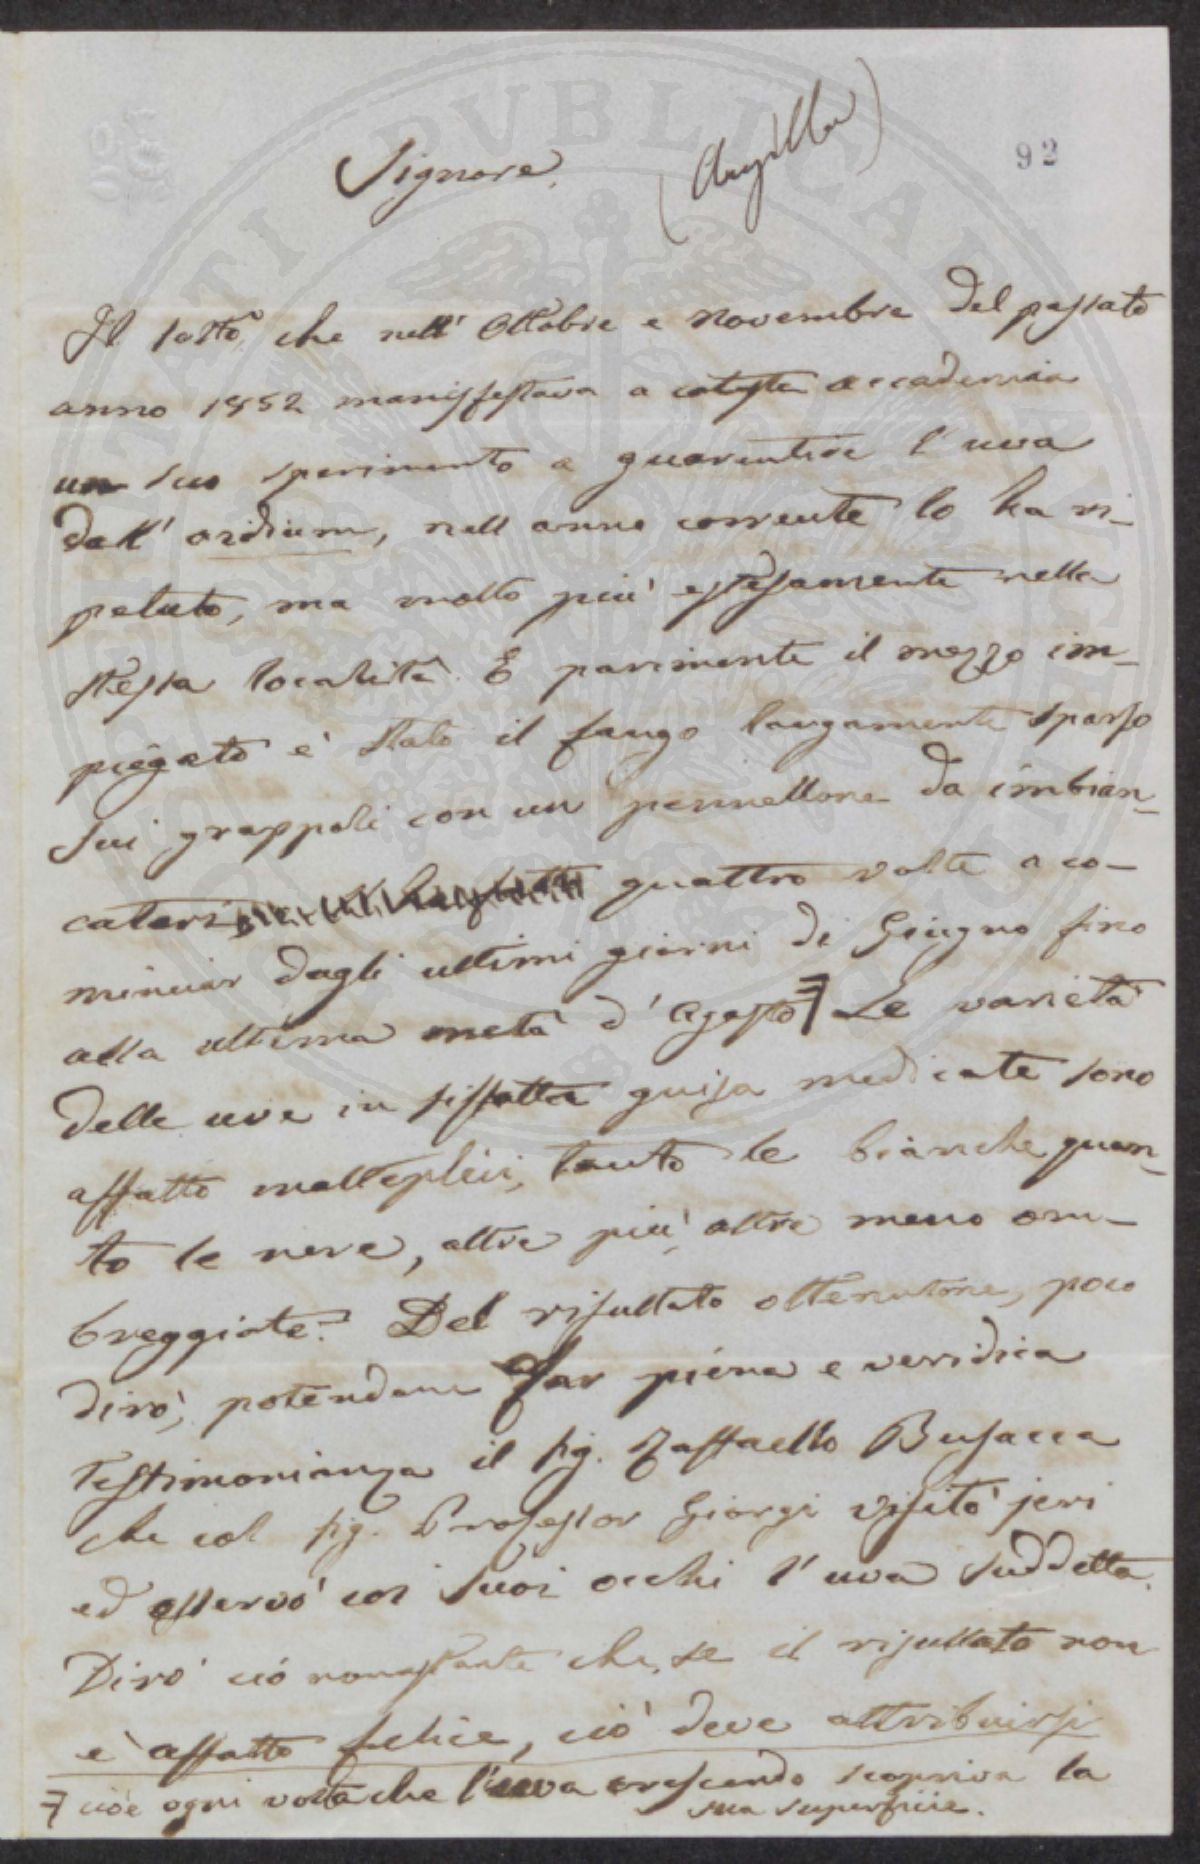 92
Signore.
(Argilla)
Il sotto, che nell' Ottobre e Novembre del passato
anno 1852 manifestava a cotesta accademia
un suo sperimento a guarentire l'uva
dall' oidium, nell anno corrente lo ha ri-
petuto, ma molto più estesamente nella
stessa località. E parimente il mezzo im-
piegato è stato il fango largamente sparso
sui grappoli con un pennellone da imbian-
catori quattro volte a co-
minciar dagli ultimi giorni di Giugno fino
alla ultima metà d' Agosto Le varietà
delle uve in siffatta guisa medicate sono
affatto molteplici, tanto le bianche quan-
to le nere, altre più, altre meno om-
breggiate. Del risultato ottenutone, poco
dirò, potendone far piena e veridica
testimonianza il sig. Raffaello Busacca
che col sig. Professor Giorgi visitò jeri
ed osservò coi suoi occhi l'uva suddetta.
Dirò ciò nonostante che, se il risultato non
è affatto felice, ciò deve attribuirsi
cioè ogni volta che l'uva crescendo scopriva la
sua superficie.
PUBLICAE